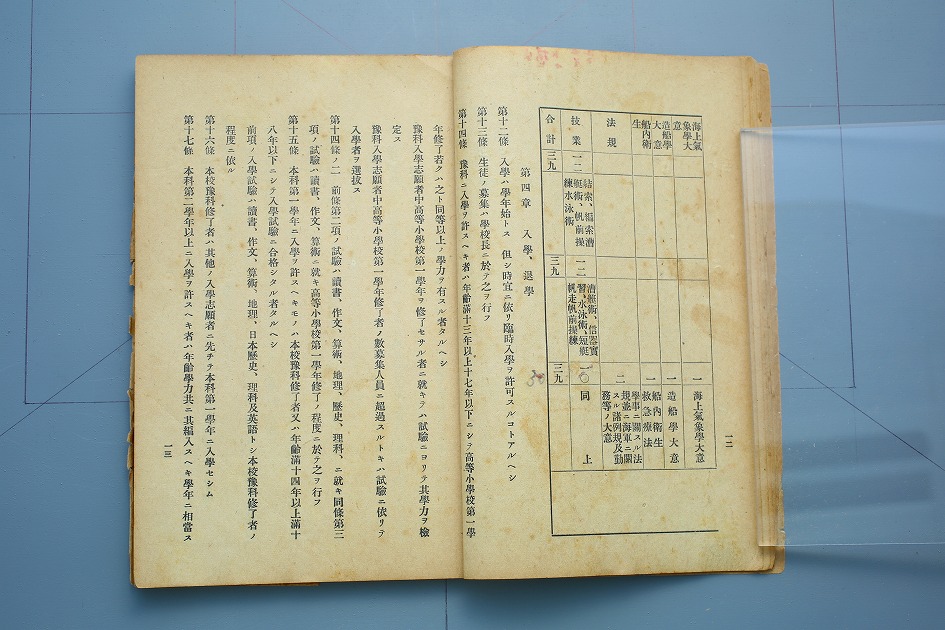 海上氣象學大意 一 海上氣象學大意
造船學大意 一 造船學大意
船內衛生 一 船內衛生救急療法
法規 二 學事ニ關スル法規並ニ海軍ニ關スル諸例規及勤務等ノ大意
技業 一二 結索、編索漕艇術、帆前操練水泳術 一二 漕艇術、信號實習、水泳術、短艇帆走帆前操練 一〇 同上
合計 三九 三九 三九
30
一二
第四章 入學、退學
第十二條 入學ハ學年始トス 但シ時宜ニ依リ臨時入學ヲ許可スルコトアルヘシ
第十三條 生徒ノ募集ハ學校長ニ於テ之ヲ行フ
第十四條 豫科ニ入學ヲ許スヘキ者ハ年齡滿十三年以上十七年以下ニシテ高等小學校第一學
年修了若クハ之ト同等以上ノ學力ヲ有スル者タルヘシ
豫科入學志願者中高等小學校第一學年ヲ修了セサル者ニ就キテハ試驗ニヨリテ其學力ヲ檢
定ス
豫科入學志願者中高等小學校第一學年修了者ノ數募集人員ニ超過スルトキハ試驗ニ依リテ
入學者ヲ選拔ス
第十四條ノ二 前條第二項ノ試驗ハ讀書、作文、算術、地理、歷史、理科、ニ就キ同條第三
項ノ試驗ハ讀書、作文、算術ニ就キ高等小學校第一學年修了ノ程度ニ於テ之ヲ行フ
第十五條 本科第一學年ニ入學ヲ許スヘキモノハ本校豫科修了者又ハ年齡滿十四年以上滿十
八年以下ニシテ入學試驗ニ合格シタル者タルヘシ
前項ノ入學試驗ハ讀書、作文、算術、地理、日本歷史、理科及英語トシ本校豫科修了者ノ
程度ニ依ル
第十六條 本校豫科修了者ハ其他ノ入學志願者ニ先チテ本科第一學年ニ入學セシム
第十七條 本科第二學年以上ニ入學ヲ許スヘキ者ハ年齡學力共ニ其編入スヘキ學年ニ相當ス
一三